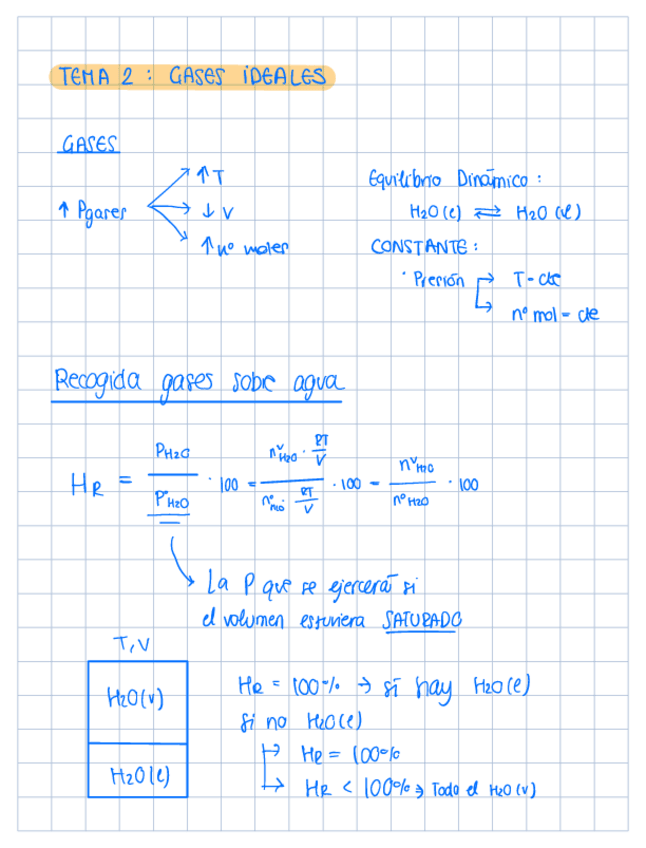 TEMA 2 : GASES IDEALES
GASES
↑ Pgases
↑ T
↓ V
↑ nº moles
Equilibrio Dinámico :
H2O (l) ⇄ H2O (l)
CONSTANTE :
· Presión → T - cte
→ nº mol - cte
Recogida gases sobre agua
HR = PH2O / PºH2O · 100 = nᵛH2O · RT/V / nºH2O · RT/V · 100 = nᵛH2O / nºH2O · 100
La P que se ejercerá si
el volumen estuviera SATURADO
T, V
H2O(v)
H2O(l)
HR = 100% → si hay H2O(l)
si no H2O(l)
→ HR = 100%
→ HR < 100% → Todo el H2O(v)